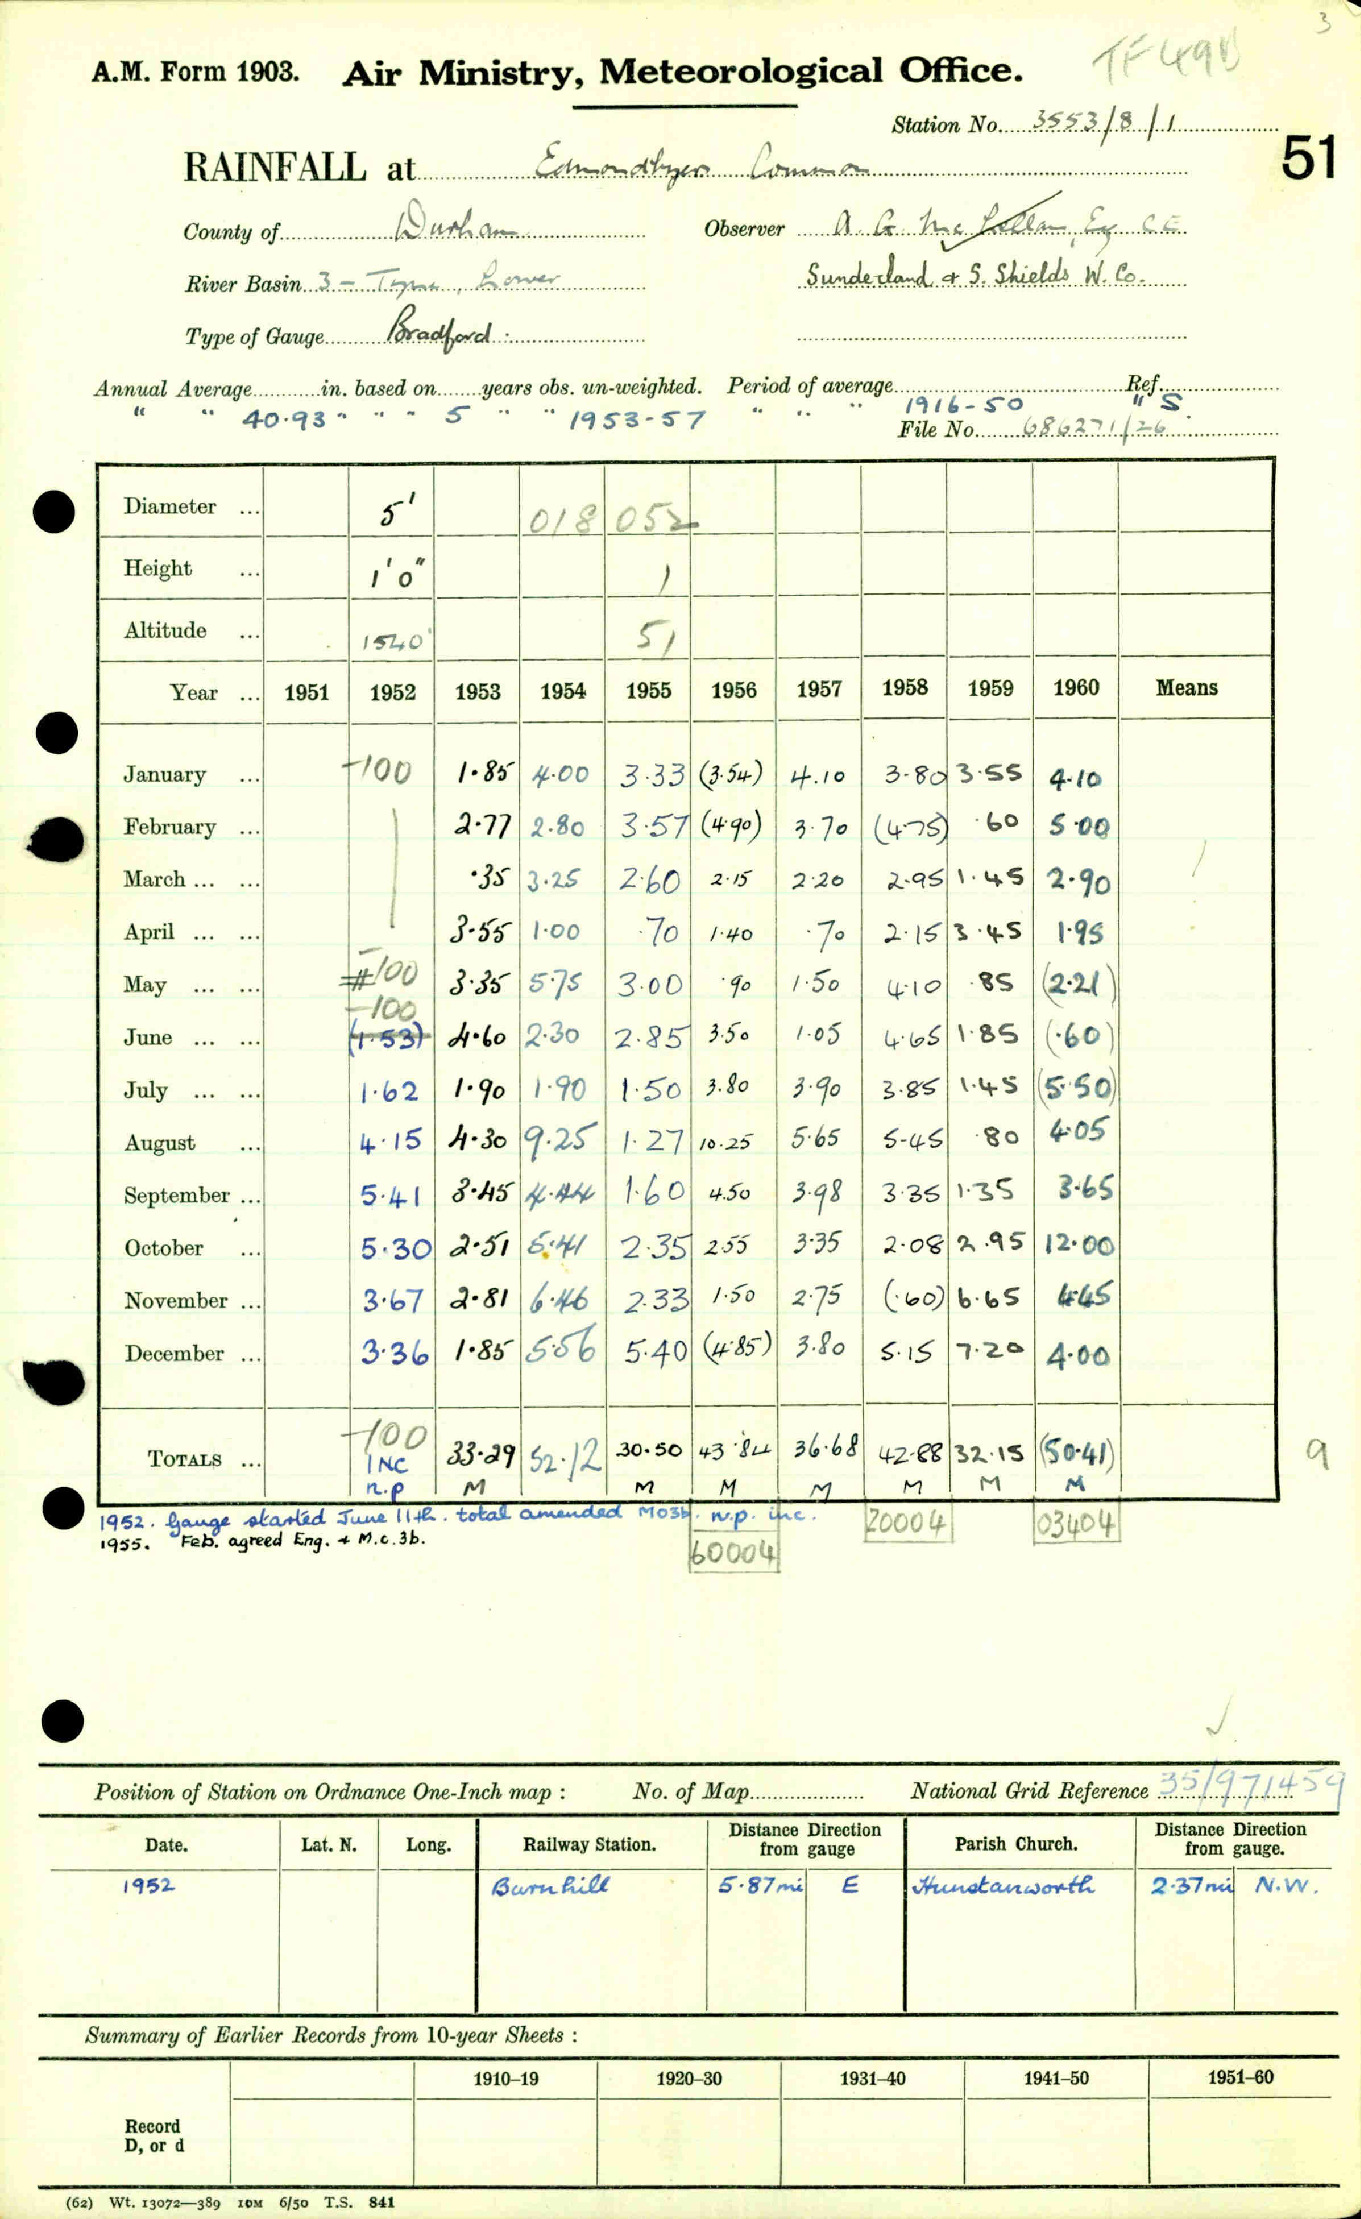 3
TF49B
A.M. Form 1903. Air Ministry, Meteorological Office.
Station No. 3553/8/1
51
RAINFALL at Edmondbyers Common
County of Durham Observer A. G. McLellan, Esq C E
River Basin 3 - Tyne, Lower Sunderland & S. Shields W. Co.
Type of Gauge Bradford
Annual Average in. based on years obs. un-weighted. Period of average Ref.
" " 40.93 " " " 5 " " 1953-57 " " " 1916-50 " S.
File No. 686271/26
Diameter ... 5' 018 052
Height ... 1'0" 1
Altitude ... 1540' 51
Year ... 1951 1952 1953 1954 1955 1956 1957 1958 1959 1960 Means
January ... -100 1.85 4.00 3.33 (3.54) 4.10 3.80 3.55 4.10
February ... 2.77 2.80 3.57 (4.90) 3.70 (4.75) .60 5.00
March ... ... .35 3.25 2.60 2.15 2.20 2.95 1.45 2.90
April ... ... 3.55 1.00 .70 1.40 .70 2.15 3.45 1.95
May ... ... -100 3.35 5.75 3.00 .90 1.50 4.10 .85 (2.21)
-100
June ... ... (1.53) 4.60 2.30 2.85 3.50 1.05 4.65 1.85 (.60)
July ... ... 1.62 1.90 1.90 1.50 3.80 3.90 3.85 1.45 (5.50)
August ... 4.15 4.30 9.25 1.27 10.25 5.65 5.45 .80 4.05
September ... 5.41 3.45 4.44 1.60 4.50 3.98 3.35 1.35 3.65
October ... 5.30 2.51 5.41 2.35 2.55 3.35 2.08 2.95 12.00
November ... 3.67 2.81 6.46 2.33 1.50 2.75 (.60) 6.65 4.45
December ... 3.36 1.85 5.56 5.40 (4.85) 3.80 5.15 7.20 4.00
-100
TOTALS ... INC 33.29 52.12 30.50 43.84 36.68 42.88 32.15 (50.41) 9
n.p M M M M M M M
1952. Gauge started June 11th. total amended M03b. n.p. inc. 20004 03404
1955. Feb. agreed Eng. + M.c.3b. 60004
Position of Station on Ordnance One-Inch map : No. of Map National Grid Reference 35/971459
Date. Lat. N. Long. Railway Station. Distance Direction from gauge Parish Church. Distance Direction from gauge.
1952 Burnhill 5.87mi E Hunstanworth 2.37mi N.W.
Summary of Earlier Records from 10-year Sheets :
1910-19 1920-30 1931-40 1941-50 1951-60
Record
D, or d
(62) Wt. 13072—389 10M 6/50 T.S. 841